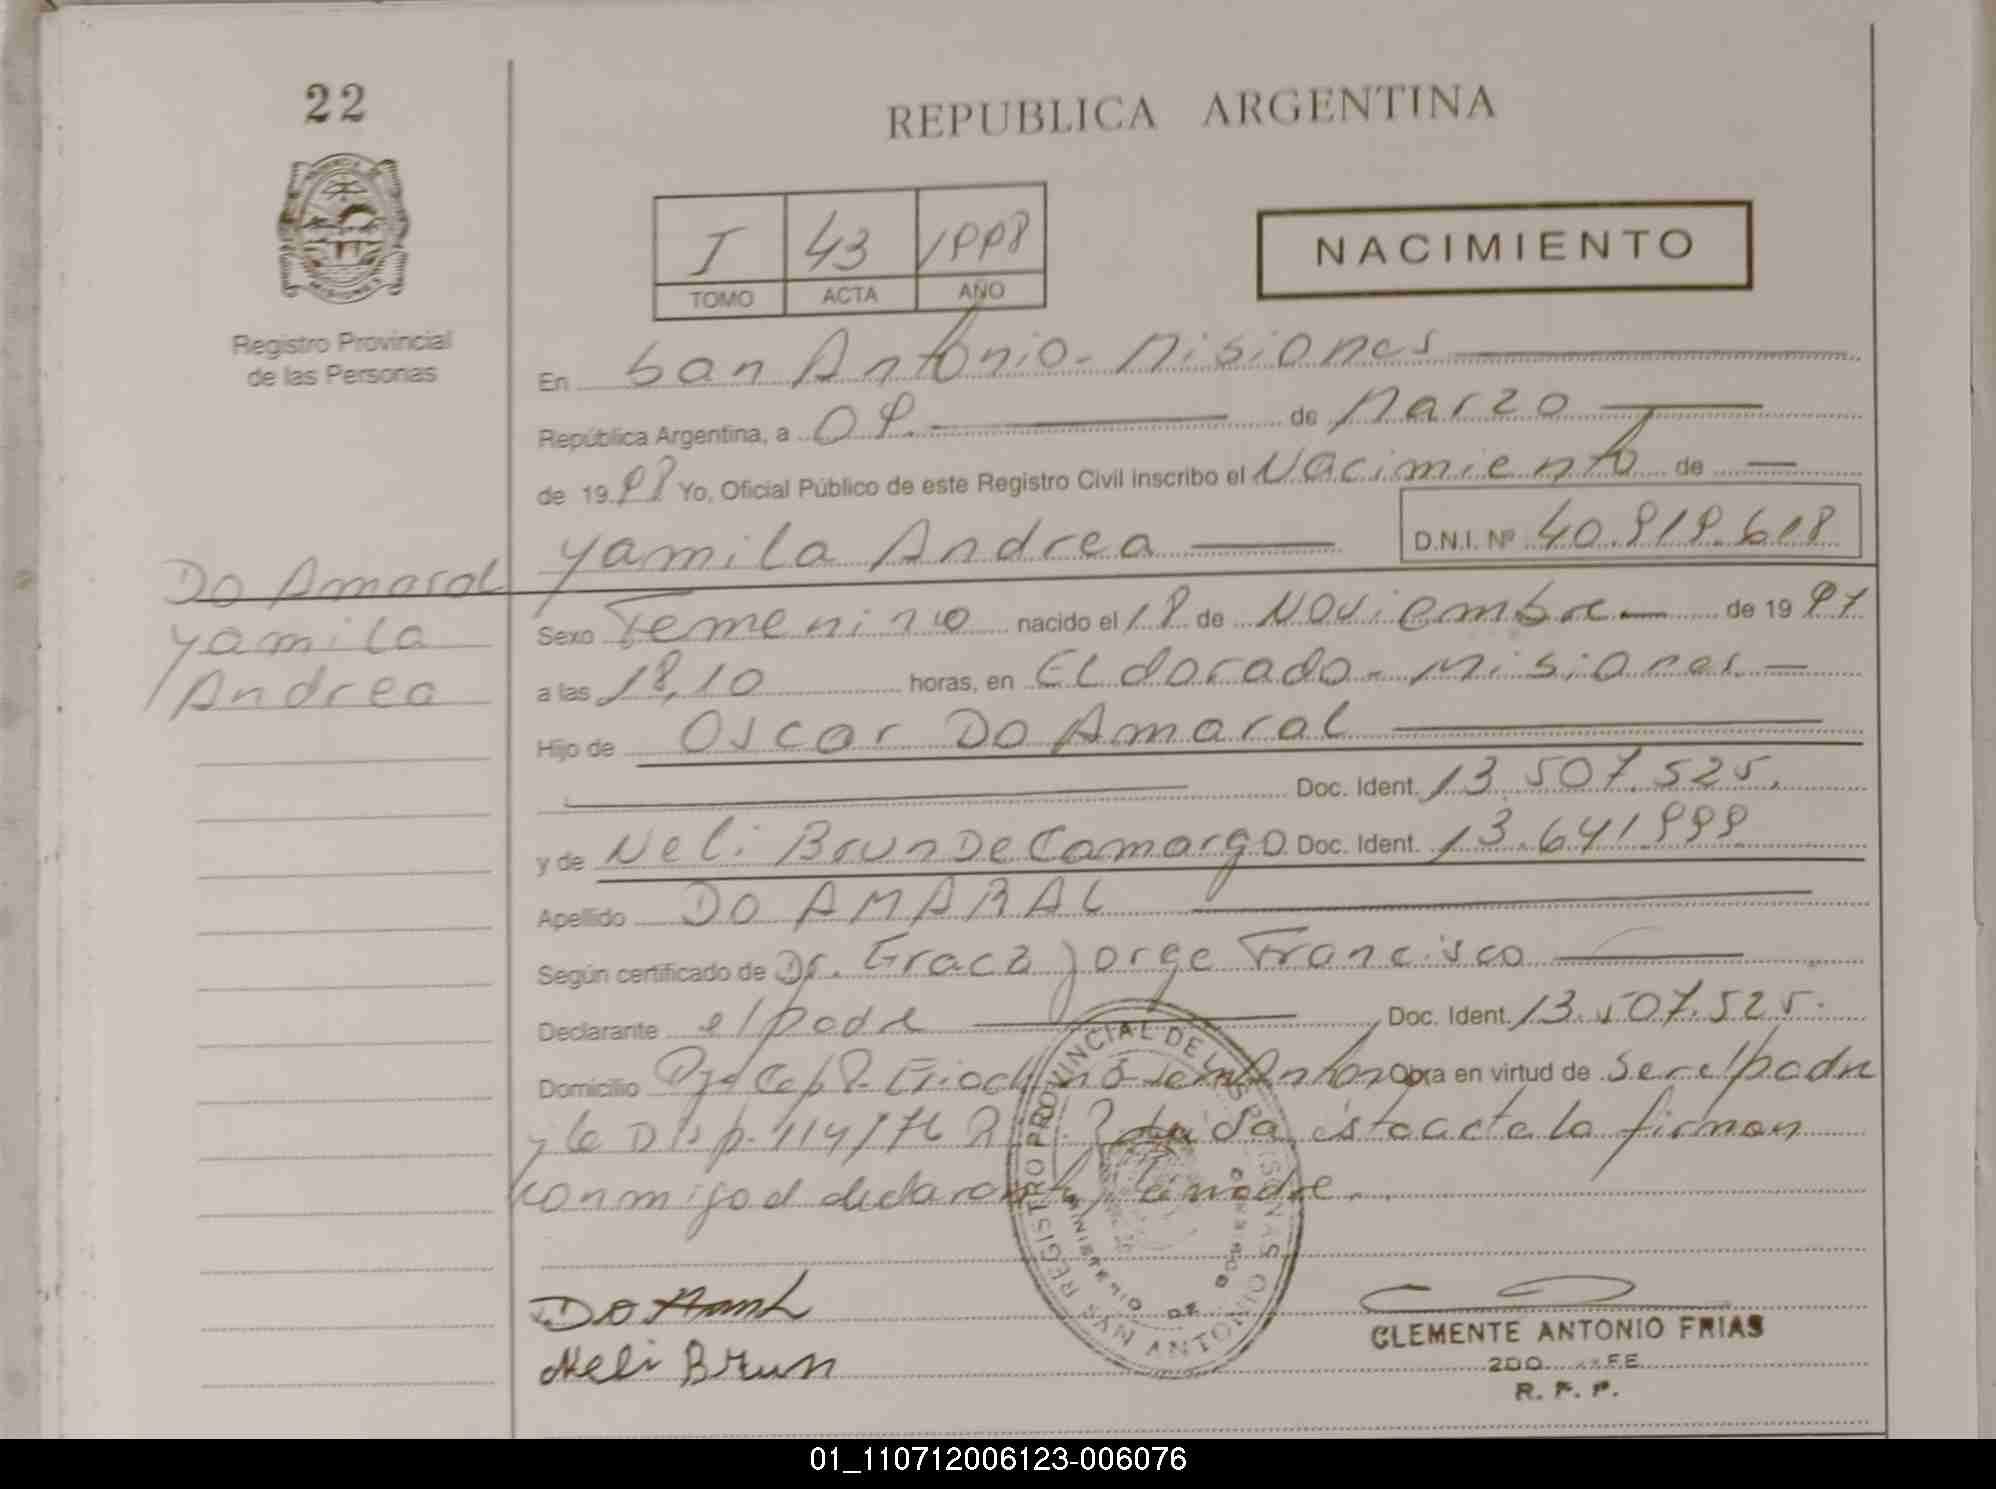 22
REPUBLICA ARGENTINA
PROVINCIA
MISIONES
Registro Provincial
de las Personas
I 43 1998
TOMO ACTA AÑO
NACIMIENTO
En San Antonio - Misiones
República Argentina, a 09 de Marzo
de 1998 Yo, Oficial Público de este Registro Civil inscribo el Nacimiento de
Yamila Andrea D.N.I. Nº 40.919.618
Do Amaral
Yamila
Andrea
Sexo Femenino nacido el 18 de Noviembre de 1997
a las 18,10 horas, en Eldorado - Misiones.
Hijo de Oscar Do Amaral
Doc. Ident. 13.507.525.
y de Neli Brun De Camargo Doc. Ident. 13.641.999
Apellido DO AMARAL
Según certificado de Dr. Graca Jorge Francisco
Declarante el padre Doc. Ident. 13.507.525.
Domicilio San Antonio Obra en virtud de ser el padre
y la Disp. 114/76 esta acta la firman
conmigo el declarante y la madre.
REGISTRO PROVINCIAL DE LAS PERSONAS
MINISTERIO DE GOBIERNO
SAN ANTONIO
Do Amaral
Neli Brun
CLEMENTE ANTONIO FRIAS
2DO JEFE
R. P. P.
01_110712006123-006076